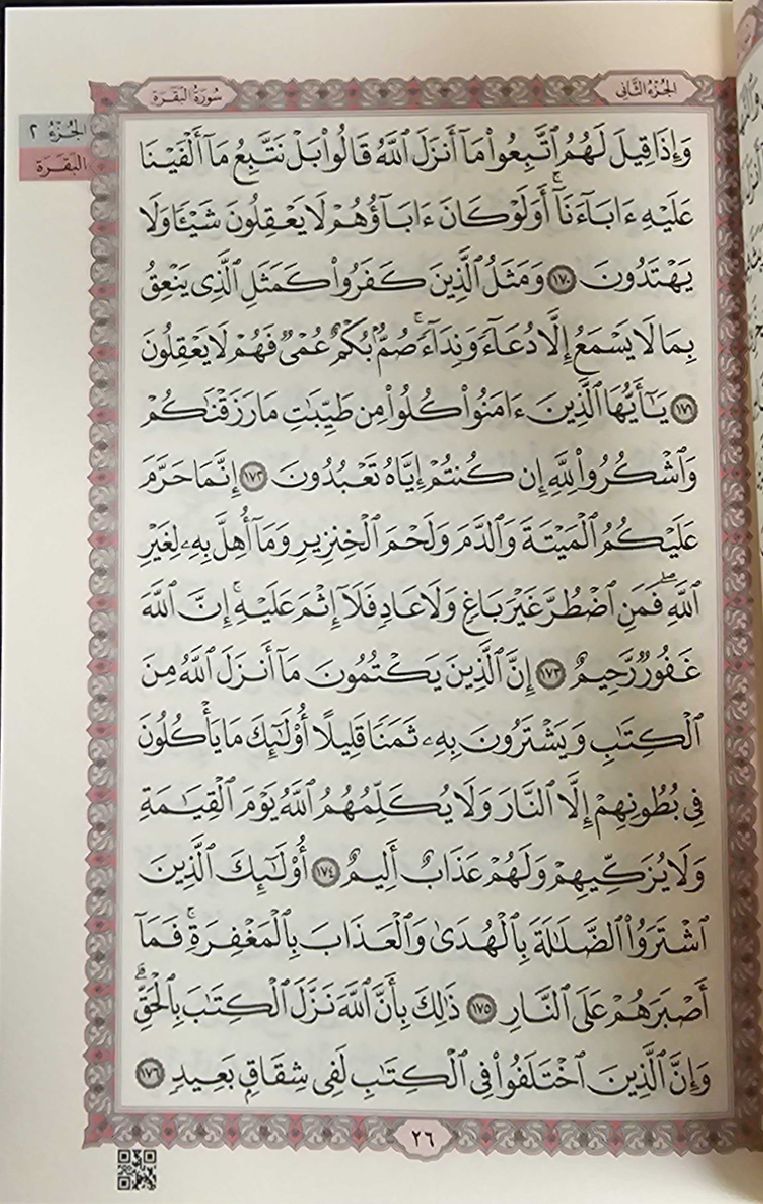 الجزء الثاني
سورة البقرة
الجزء ٢
البقرة
وَإِذَا قِيلَ لَهُمُ ٱتَّبِعُوا۟ مَآ أَنزَلَ ٱللَّهُ قَالُوا۟ بَلْ نَتَّبِعُ مَآ أَلْفَيْنَا
عَلَيْهِ ءَابَآءَنَآ ۚ أَوَلَوْ كَانَ ءَابَآؤُهُمْ لَا يَعْقِلُونَ شَيْـًٔا وَلَا
يَهْتَدُونَ ١٧٠ وَمَثَلُ ٱلَّذِينَ كَفَرُوا۟ كَمَثَلِ ٱلَّذِى يَنْعِقُ
بِمَا لَا يَسْمَعُ إِلَّا دُعَآءً وَنِدَآءً ۚ صُمٌّۢ بُكْمٌ عُمْىٌ فَهُمْ لَا يَعْقِلُونَ
١٧١ يَـٰٓأَيُّهَا ٱلَّذِينَ ءَامَنُوا۟ كُلُوا۟ مِن طَيِّبَـٰتِ مَا رَزَقْنَـٰكُمْ
وَٱشْكُرُوا۟ لِلَّهِ إِن كُنتُمْ إِيَّاهُ تَعْبُدُونَ ١٧٢ إِنَّمَا حَرَّمَ
عَلَيْكُمُ ٱلْمَيْتَةَ وَٱلدَّمَ وَلَحْمَ ٱلْخِنزِيرِ وَمَآ أُهِلَّ بِهِۦ لِغَيْرِ
ٱللَّهِ ۖ فَمَنِ ٱضْطُرَّ غَيْرَ بَاغٍ وَلَا عَادٍ فَلَآ إِثْمَ عَلَيْهِ ۚ إِنَّ ٱللَّهَ
غَفُورٌ رَّحِيمٌ ١٧٣ إِنَّ ٱلَّذِينَ يَكْتُمُونَ مَآ أَنزَلَ ٱللَّهُ مِنَ
ٱلْكِتَـٰبِ وَيَشْتَرُونَ بِهِۦ ثَمَنًا قَلِيلًا أُو۟لَـٰٓئِكَ مَا يَأْكُلُونَ
فِى بُطُونِهِمْ إِلَّا ٱلنَّارَ وَلَا يُكَلِّمُهُمُ ٱللَّهُ يَوْمَ ٱلْقِيَـٰمَةِ
وَلَا يُزَكِّيهِمْ وَلَهُمْ عَذَابٌ أَلِيمٌ ١٧٤ أُو۟لَـٰٓئِكَ ٱلَّذِينَ
ٱشْتَرَوُا۟ ٱلضَّلَـٰلَةَ بِٱلْهُدَىٰ وَٱلْعَذَابَ بِٱلْمَغْفِرَةِ ۚ فَمَآ
أَصْبَرَهُمْ عَلَى ٱلنَّارِ ١٧٥ ذَٰلِكَ بِأَنَّ ٱللَّهَ نَزَّلَ ٱلْكِتَـٰبَ بِٱلْحَقِّ ۗ
وَإِنَّ ٱلَّذِينَ ٱخْتَلَفُوا۟ فِى ٱلْكِتَـٰبِ لَفِى شِقَاقٍۭ بَعِيدٍ ١٧٦
٢٦